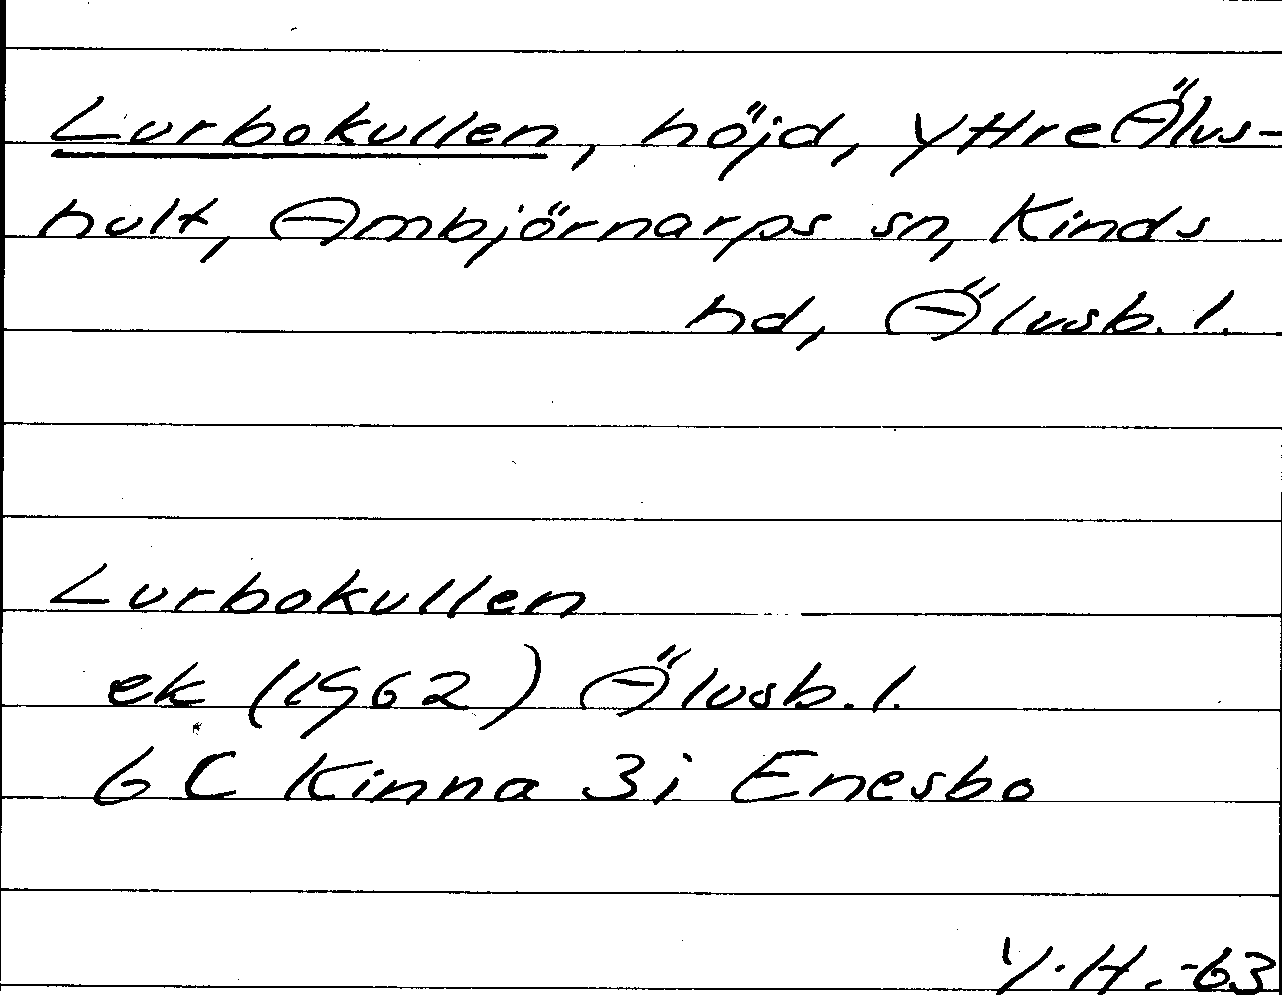 Lurbokullen, höjd, Yttre Älvs-
hult, Ambjörnarps sn, Kinds
hd, Älvsb. l.
Lurbokullen
ek (1962) Älvsb. l.
6 C Kinna 3i Enesbo
Y. H. -63